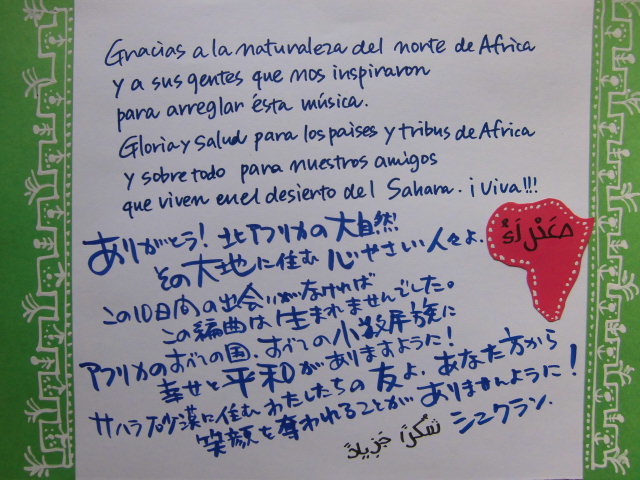 Gracias a la naturaleza del norte de Africa
y a sus gentes que nos inspiraron
para arreglar ésta música.
Gloria y salud para los paises y tribus de Africa
y sobre todo para nuestros amigos
que viven en el desiento del Sahara. ¡Viva!!!
ありがとう！北アフリカの大自然
その大地に住む心やさしい人々よ、
この10日間の出会いがなければ
この編曲は生まれませんでした。
アフリカのすべての国、すべての小数民族に
幸せと平和がありますように！
サハラ砂漠に住むわたしたちの友よ、あなた方から
笑顔を奪われることがありませんように！
シュクラン.
شكرا جزيلا